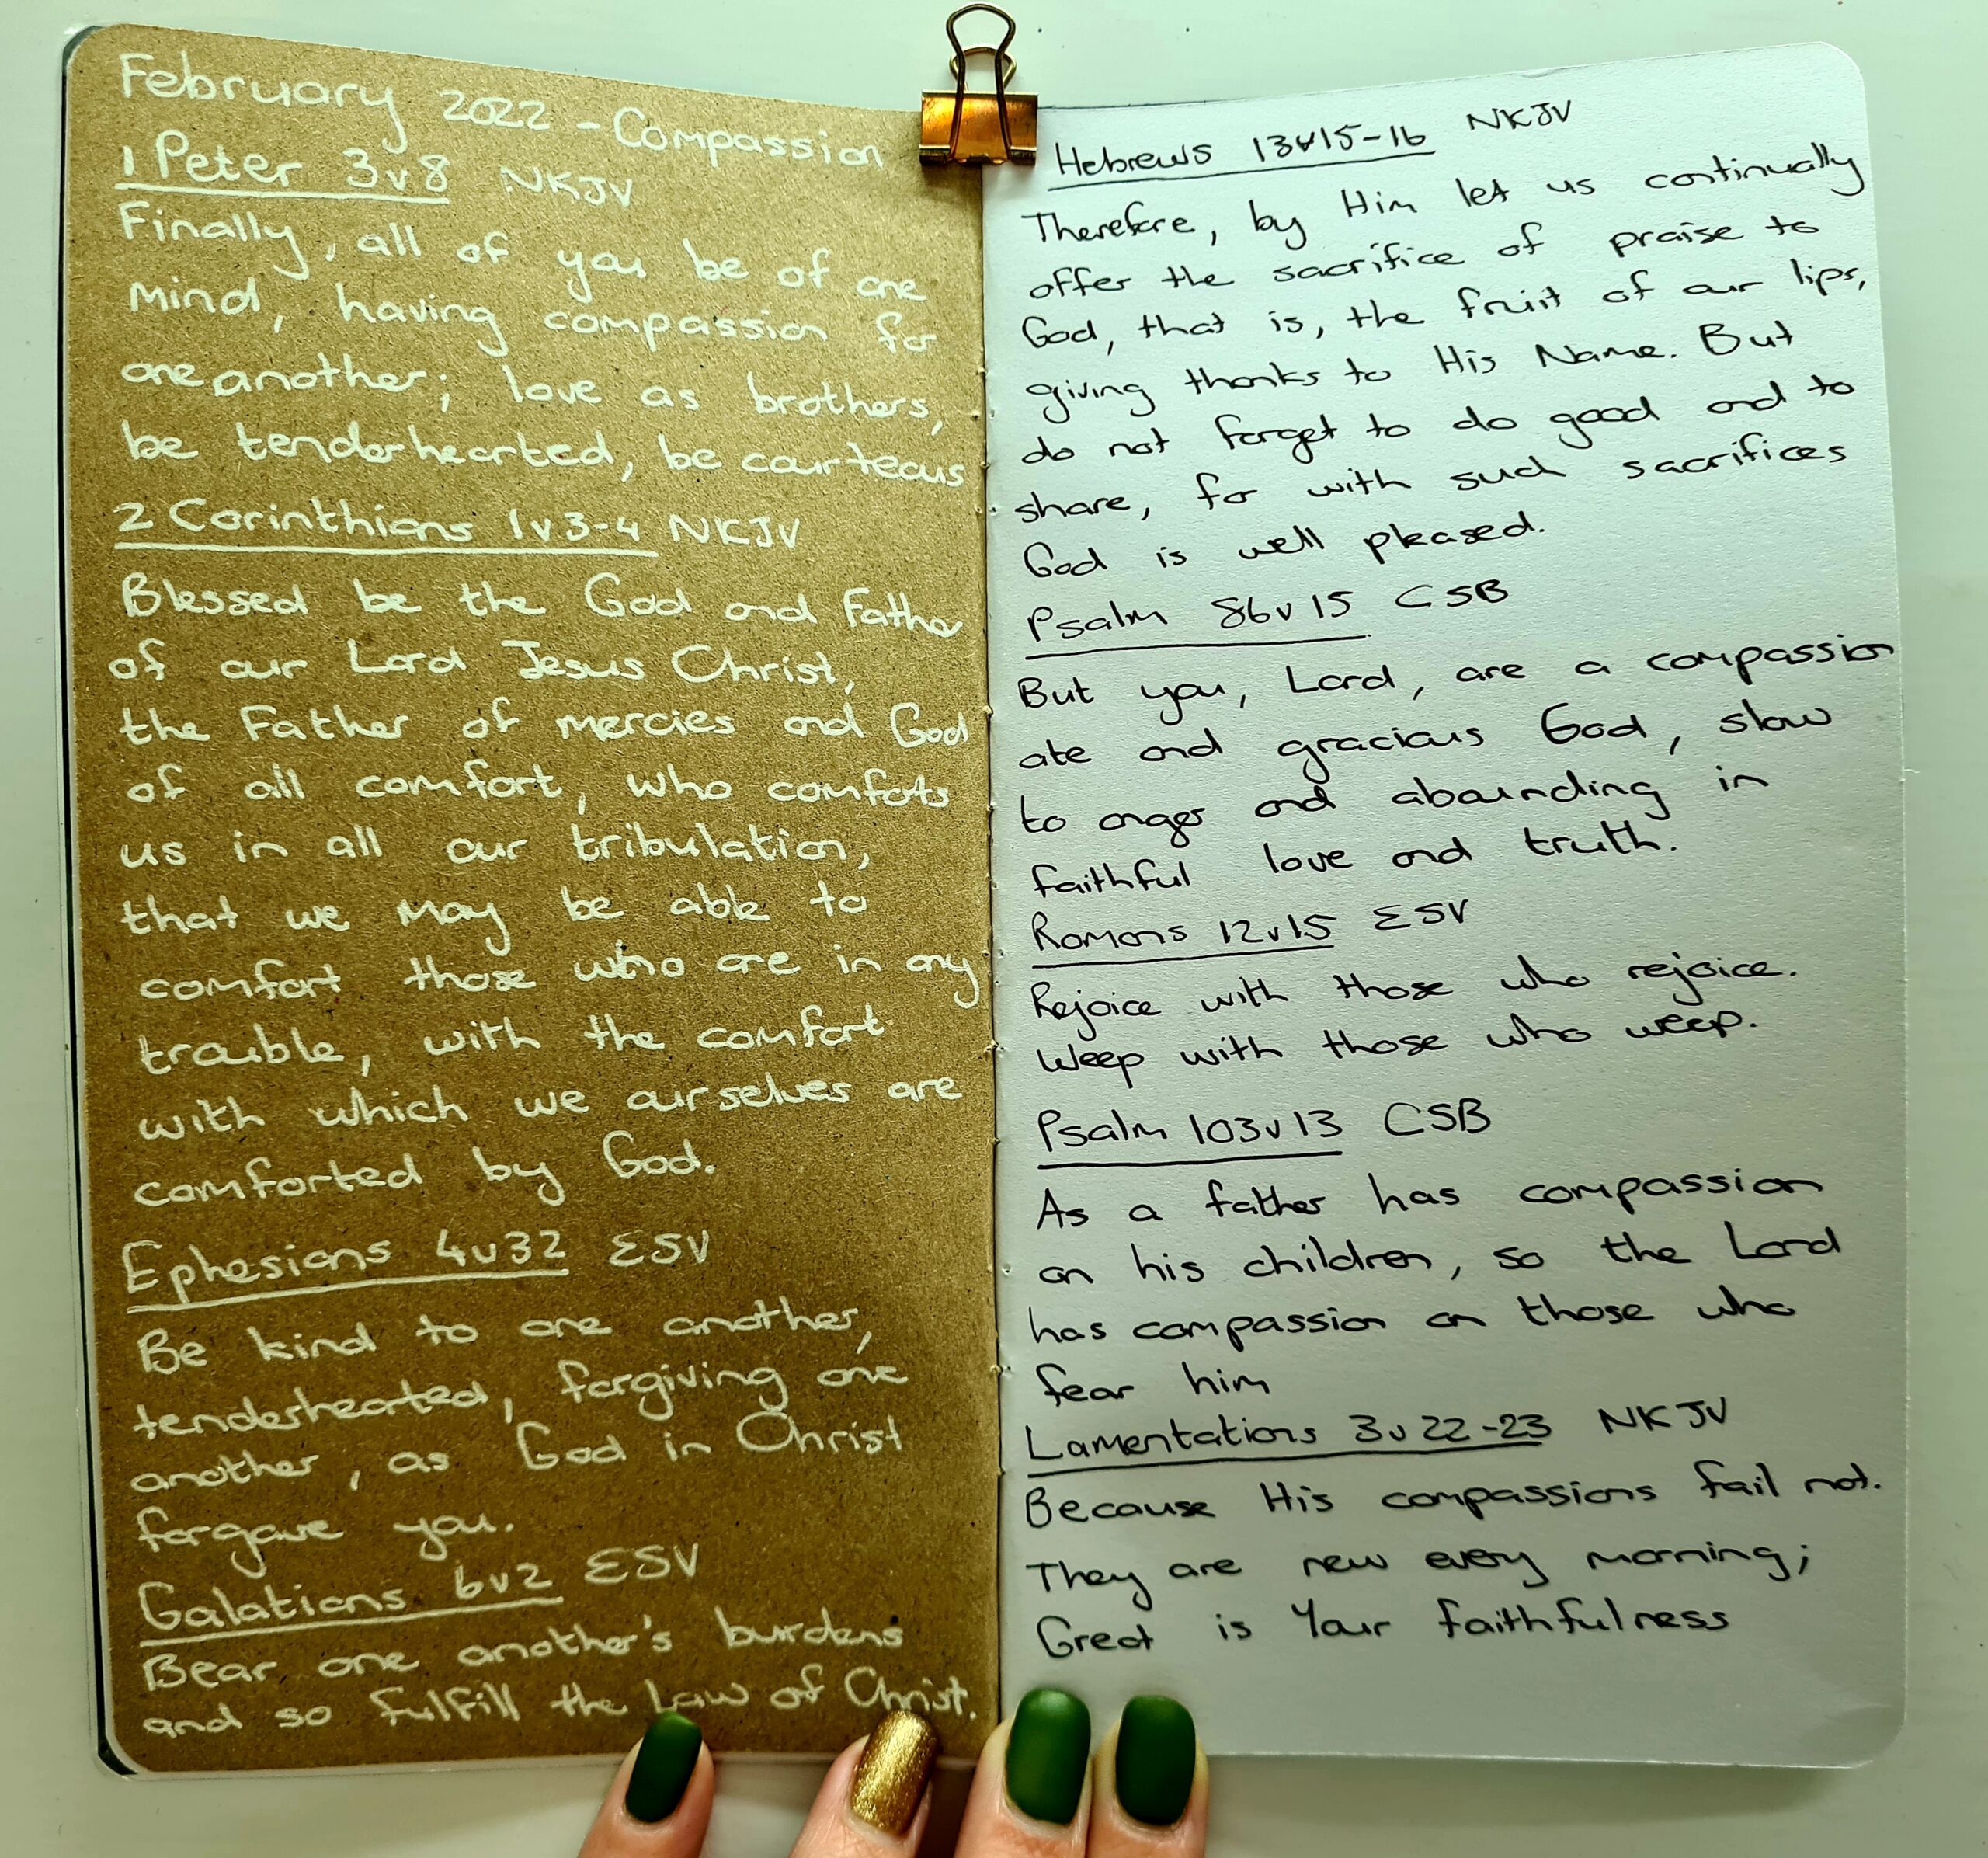 February 2022 - Compassion
1 Peter 3v8 NKJV
Finally, all of you be of one
mind, having compassion for
one another; love as brothers,
be tenderhearted, be courteous
2 Corinthians 1v3-4 NKJV
Blessed be the God and Father
of our Lord Jesus Christ,
the Father of mercies and God
of all comfort, who comforts
us in all our tribulation,
that we may be able to
comfort those who are in any
trouble, with the comfort
with which we ourselves are
comforted by God.
Ephesians 4v32 ESV
Be kind to one another,
tenderhearted, forgiving one
another, as God in Christ
forgave you.
Galatians 6v2 ESV
Bear one another's burdens
and so fulfill the Law of Christ.
Hebrews 13v15-16 NKJV
Therefore, by Him let us continually
offer the sacrifice of praise to
God, that is, the fruit of our lips,
giving thanks to His Name. But
do not forget to do good and to
share, for with such sacrifices
God is well pleased.
Psalm 86v15 CSB
But you, Lord, are a compassion
ate and gracious God, slow
to anger and abounding in
faithful love and truth.
Romans 12v15 ESV
Rejoice with those who rejoice.
Weep with those who weep.
Psalm 103v13 CSB
As a father has compassion
on his children, so the Lord
has compassion on those who
fear him
Lamentations 3v22-23 NKJV
Because His compassions fail not.
They are new every morning;
Great is Your faithfulness